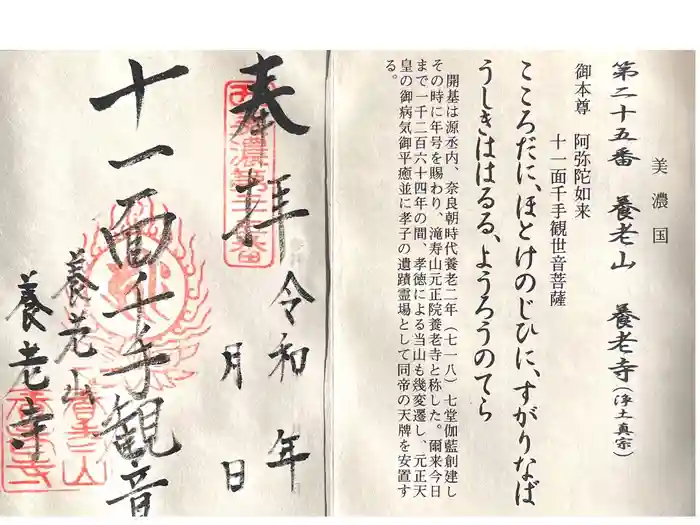 美濃国
第二十五番 養老山 養老寺(浄土真宗)
御本尊 阿弥陀如来
十一面千手観世音菩薩
こころだに、ほとけのじひに、すがりなば
うしきははるる、ようろうのてら
開基は源丞内、奈良朝時代養老二年(七一八)七堂伽藍創建し
その時に年号を賜わり、滝寿山元正院養老寺と称した。爾来今日
まで一千二百六十四年の間、孝徳による当山も幾変遷し、元正天
皇の御病気御平癒並に孝子の遺蹟霊場として同帝の天牌を安置す
る。
奉拝 令和 年
月 日
十一面千手観音
養老山
養老寺